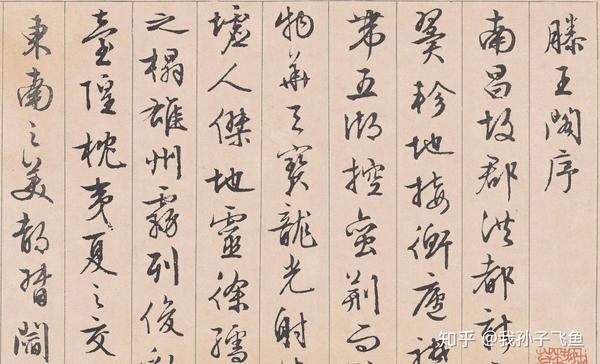 滕王閣序
南昌故郡洪都
翼軫地接衡廬襟
帶五湖控蠻荊而
物華天寶龍光射
墟人傑地靈徐孺
之榻雄州霧列俊
臺隍枕夷夏之交
東南之美都督閻
知乎 @我孙子飞鱼